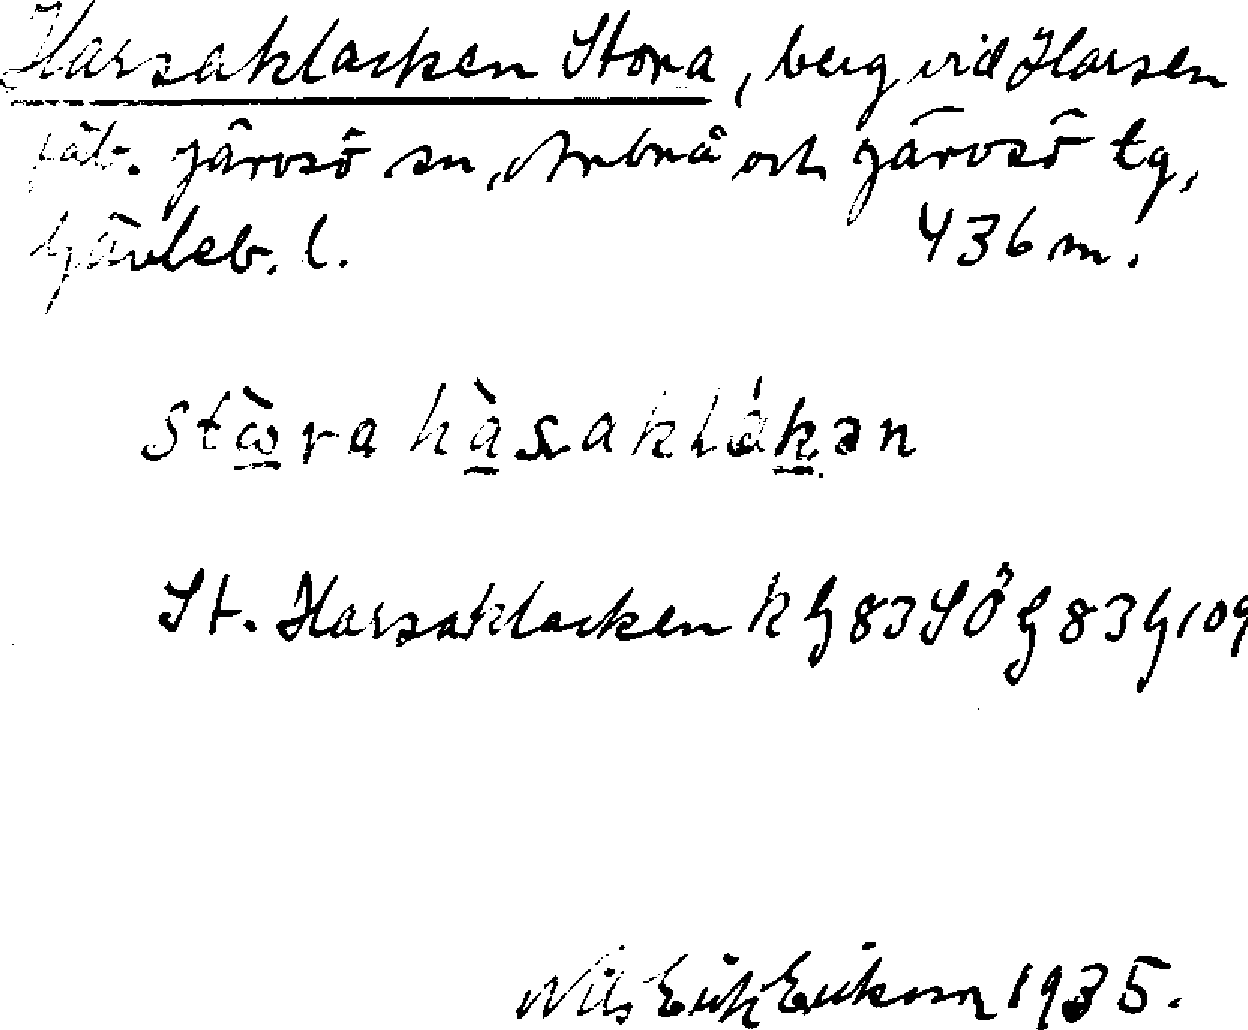 Harsaklacken Stora, berg vid Harsen
fäb. Järvsö sn, Arbrå och Järvsö tg,
Gävleb. l. 436 m.
stὼra hàsaklákən
St. Harsaklacken k G 83 SÖ G 83 G 109
Nils Erik Erikson 1935.